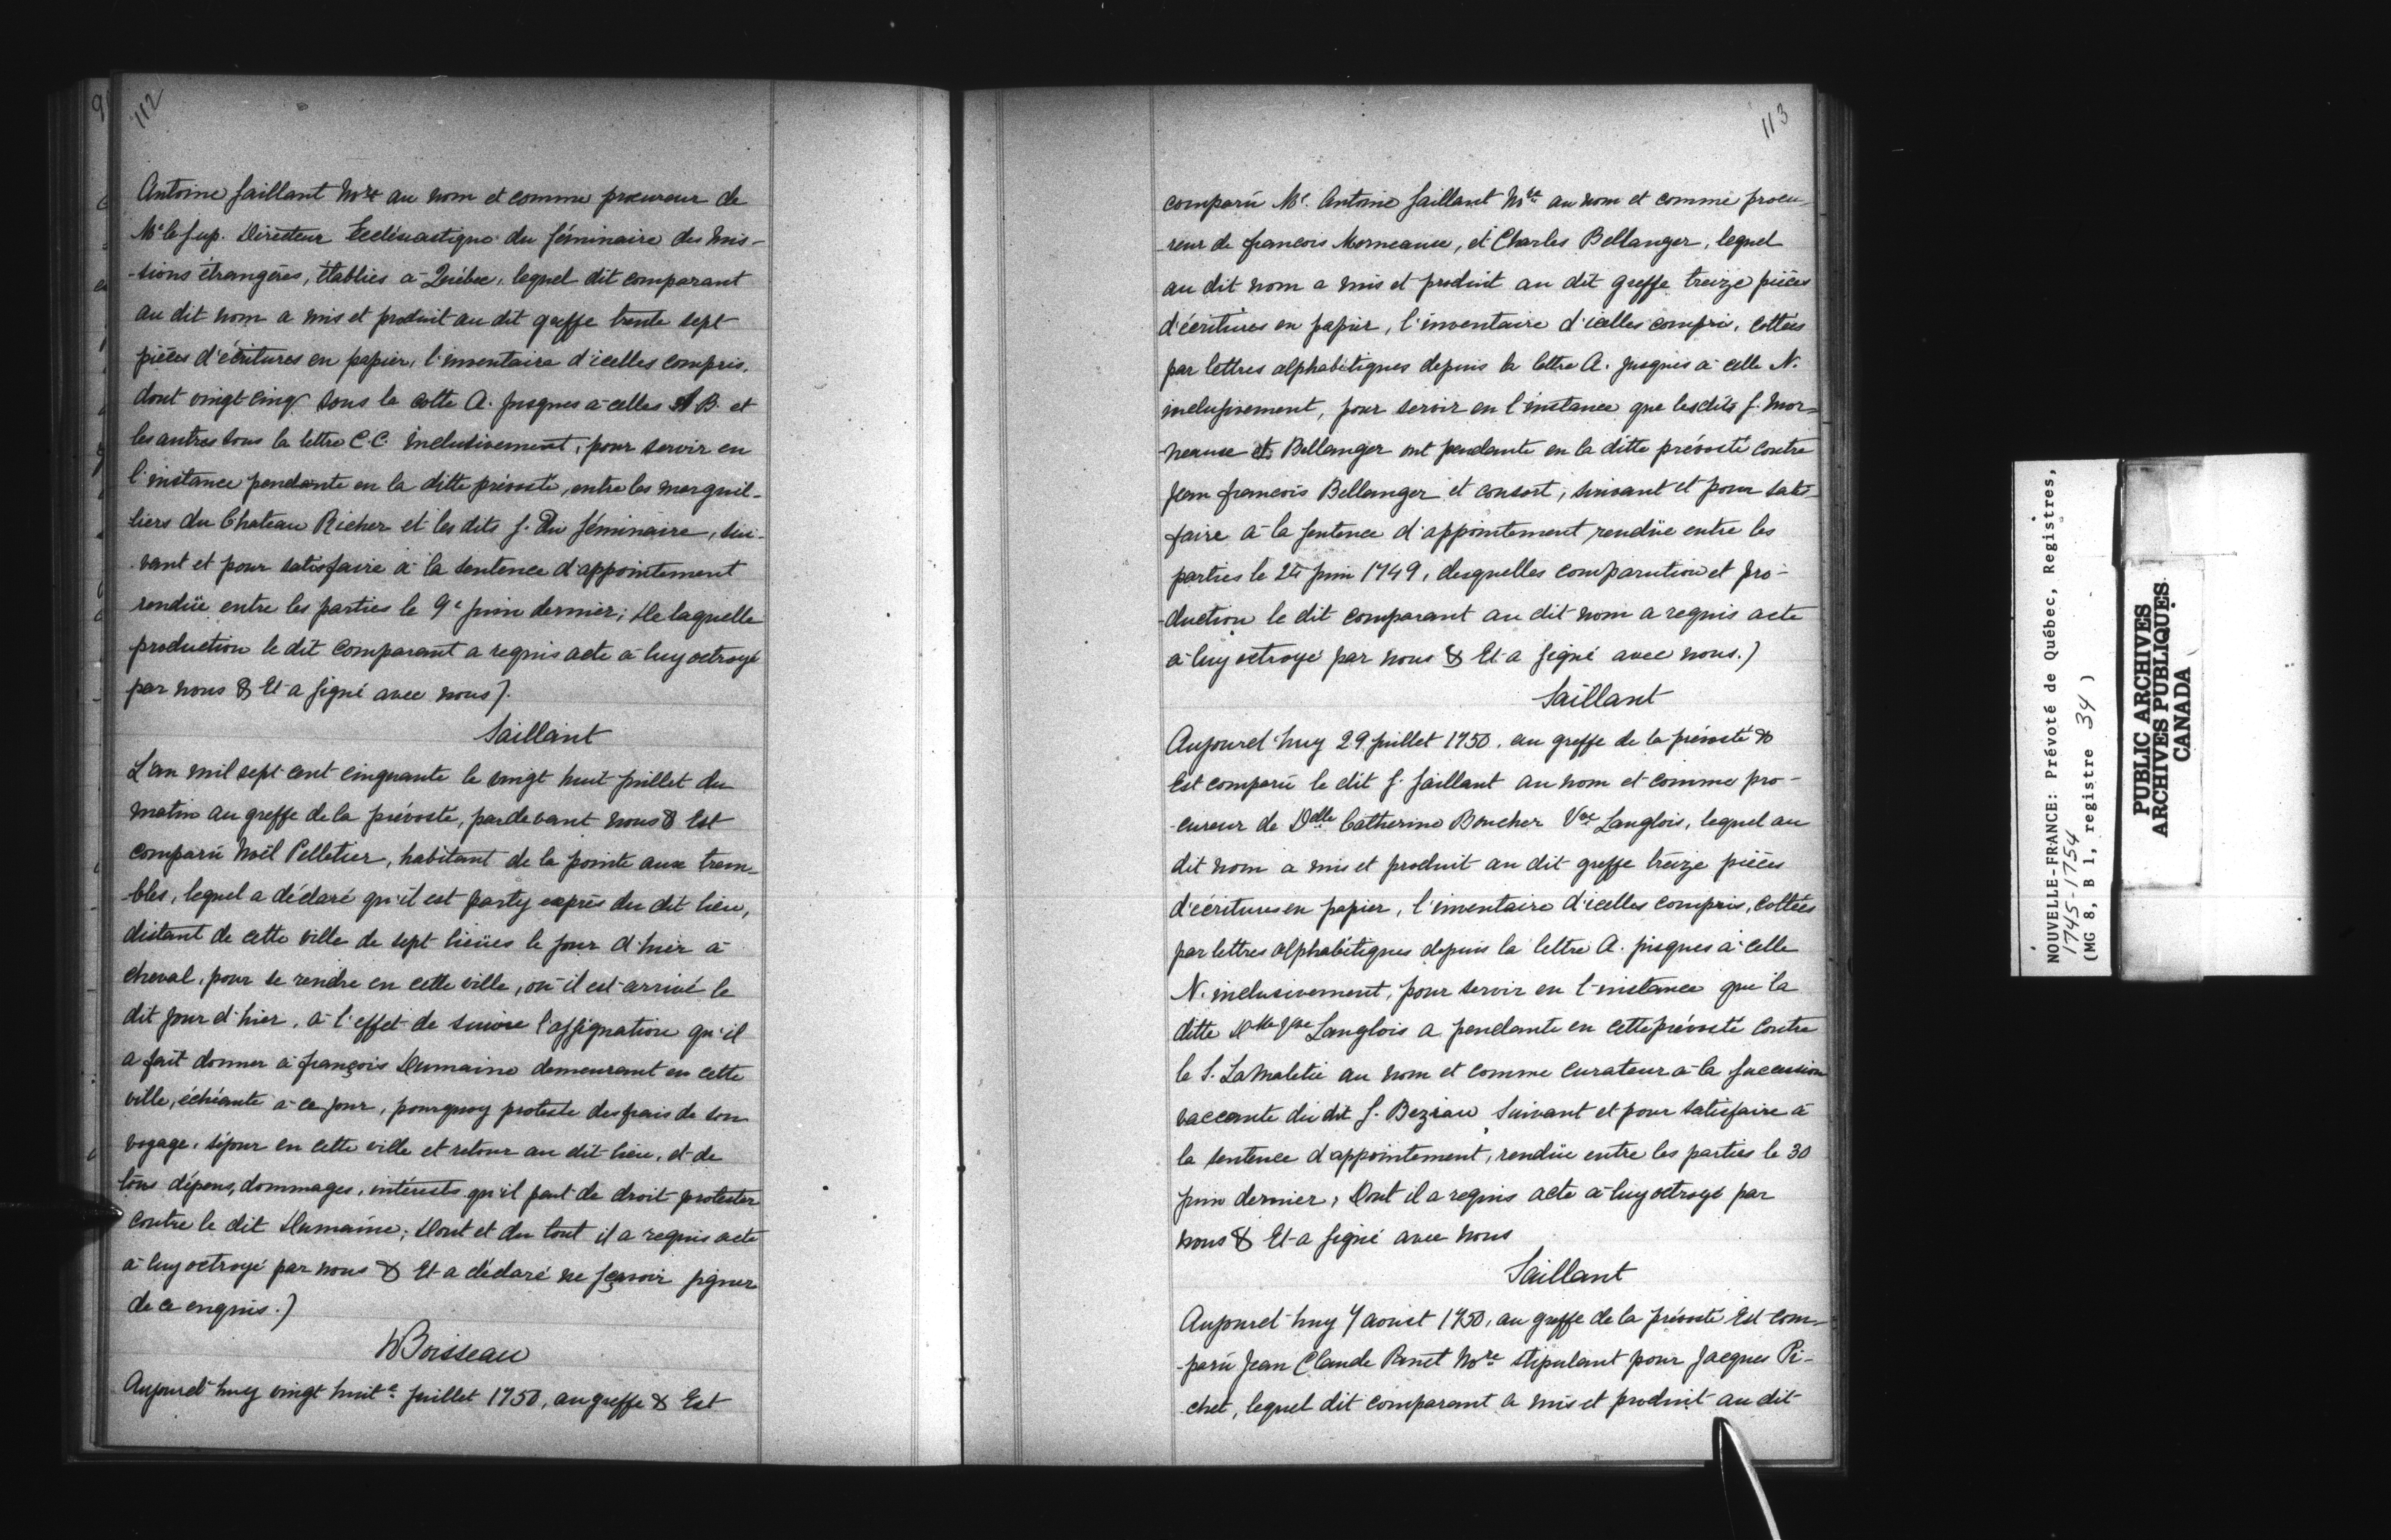 112
Antoine Saillant Nre au nom et comme procureur de
Mr le Sup. Directeur Ecclésiastique du Séminaire des Mis-
-sions étrangères, établies à Québec, lequel dit comparant
au dit nom a mis et produit au dit greffe trente sept
pièces d'écritures en papier, l'inventaire d'icelles compris,
dont vingt cinq sous la cotte A. jusques à celles B. et
les autres sous la lettre C.C. inclusivement, pour servir en
l'instance pendante en la ditte prévosté, entre les marguil-
liers du Chateau Richer et les dits S. Du Séminaire, sui-
-vant et pour satisfaire à la sentence d'appointement
rendüe entre les parties le 9e juin dernier; De laquelle
production le dit Comparant a requis acte à luy octroyé
par nous & Et a signé avec nous).
Saillant
L'an mil sept cent cinquante le vingt huit juillet du
matin au greffe de la prévosté, pardevant nous & Est
comparü Noël Pelletier, habitant de la pointe aux trem-
-bles, lequel a déclaré qu'il est party exprès du dit lieu,
distant de cette ville de sept lieües le jour d'hier à
cheval, pour se rendre en cette ville, où il est arrivé le
dit jour d'hier, à l'effet de suivre l'assignation qu'il
a fait donner à françois Dumaine demeurant en cette
ville, échéante à ce jour, pourquoy proteste des frais de son
voyage, séjour en cette ville et retour au dit lieu, et de
tous dépens, dommages, intérests qu'il peut de droit protester
contre le dit Dumaine; Dont et du tout il a requis acte
à luy octroyé par nous & Et a déclaré ne sçavoir signer
de ce enquis.)
NBoisseau
Aujourd'huy vingt huite juillet 1750, au greffe & Est
113
comparü Me. Antoine Saillant Nre au nom et comme procu-
-reur de francois Morneause, et Charles Bellanger, lequel
au dit nom a mis et produit au dit greffe treize pièces
d'écritures en papier, l'inventaire d'icelles compris, cottées
par lettres alphabétiques depuis la lettre A. jusques à celle N.
inclusivement, pour servir en l'instance que lesdits S. Mor-
neause et Bellanger ont pendante en la ditte prévosté contre
Jean francois Bellanger et consort, suivant et pour satis-
faire à la sentence d'appointement rendüe entre les
parties le juin 1749, desquelles comparution et pro-
-duction le dit comparant au dit nom a requis acte
à luy octroyé par nous & Et a signé avec nous.)
Saillant
Aujourd'huy 29 juillet 1750, au greffe de la prévosté &
Est comparü le dit S. Saillant au nom et comme pro-
-cureur de Delle Catherine Boucher Vve Langlois, lequel au
dit nom a mis et produit au dit greffe treize pièces
d'écritures en papier, l'inventaire d'icelles compris, cottées
par lettres alphabétiques depuis la lettre A. jusques à celle
N. inclusivement, pour servir en l'instance que la
ditte Delle Vve Langlois a pendante en cette prévosté contre
le S. LaMaletie au nom et comme curateur à la succession
vaccante du dit S. Beziau, suivant et pour satisfaire à
la sentence d'appointement, rendüe entre les parties le 30
juin dernier, Dont il a requis acte à luy octroyé par
nous & Et a signé avec nous
Saillant
Aujourd'huy 7 aoust 1750, au greffe de la prévosté Est com-
-parü Jean Claude Panet Nre stipulant pour Jacques Pi-
-chet, lequel dit comparant a mis et produit au dit
NOUVELLE-FRANCE: Prévoté de Québec, Registres,
1745-1754
(MG 8, B 1, registre 34)
PUBLIC ARCHIVES
ARCHIVES PUBLIQUES
CANADA